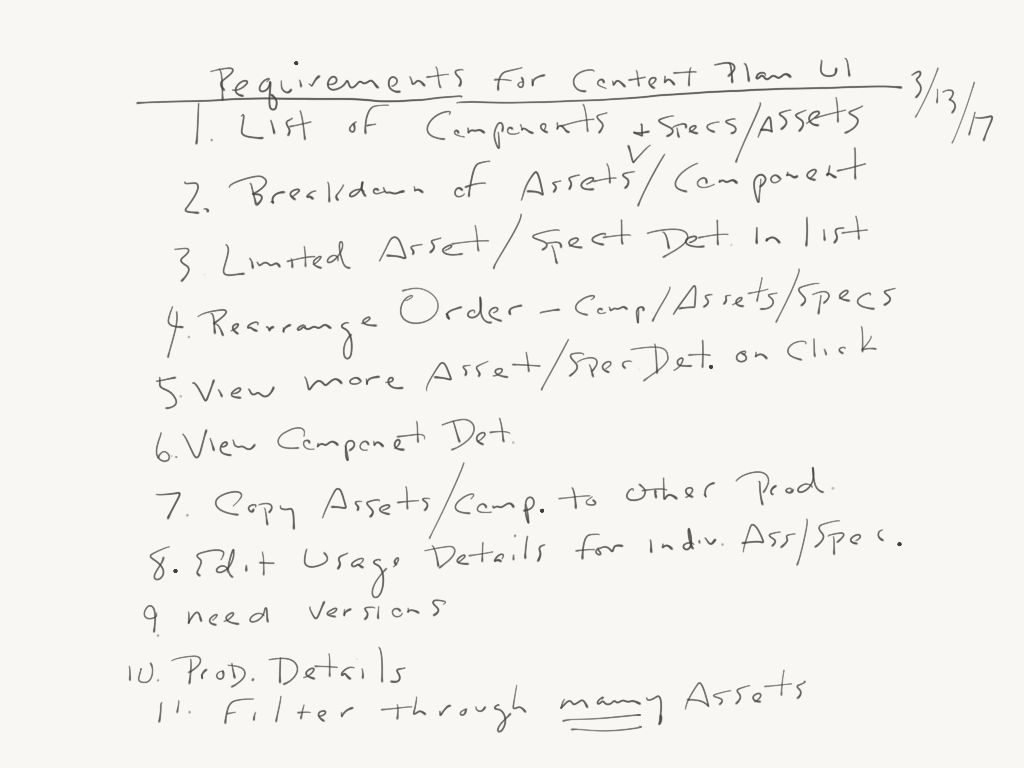 Requirements for Content Plan UI 3/13/17
1. List of Components + Specs/Assets
2. Breakdown of Assets/Component
3 Limited Asset/Spect Det. In list
4. Rearrange Order - Comp/Assets/Specs
5. View more Asset/Spec Det. on Click
6. View Componet Det.
7. Copy Assets/Comp. to other Prod.
8. Edit Usage Details for indiv. Ass/Spec.
9. need versions
10. Prod. Details
11. Filter through many Assets